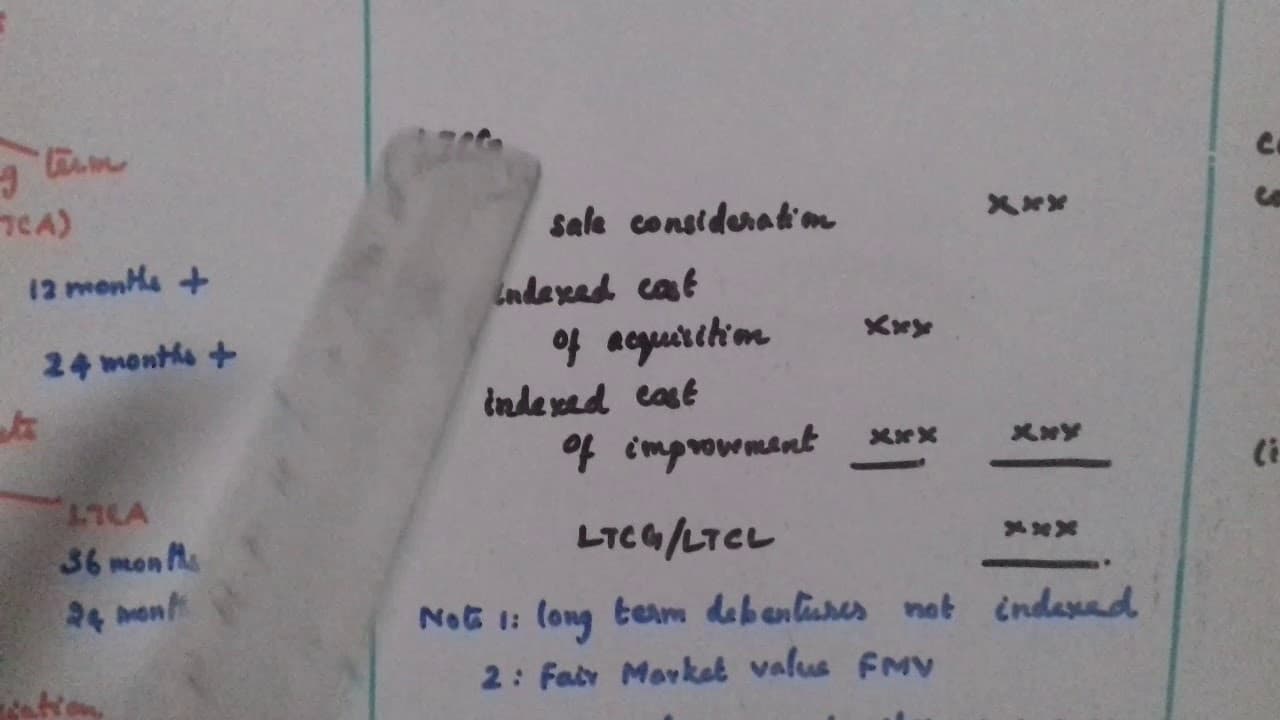 term
12 months +
24 months +
LTCA
36 months
24 mont
sale consideration xxx
indexed cost
of acquisition xxx
indexed cost
of improvement xxx xxx
LTCG/LTCL xxx
Note 1: long term debentures not indexed
2: Fair Market value FMV